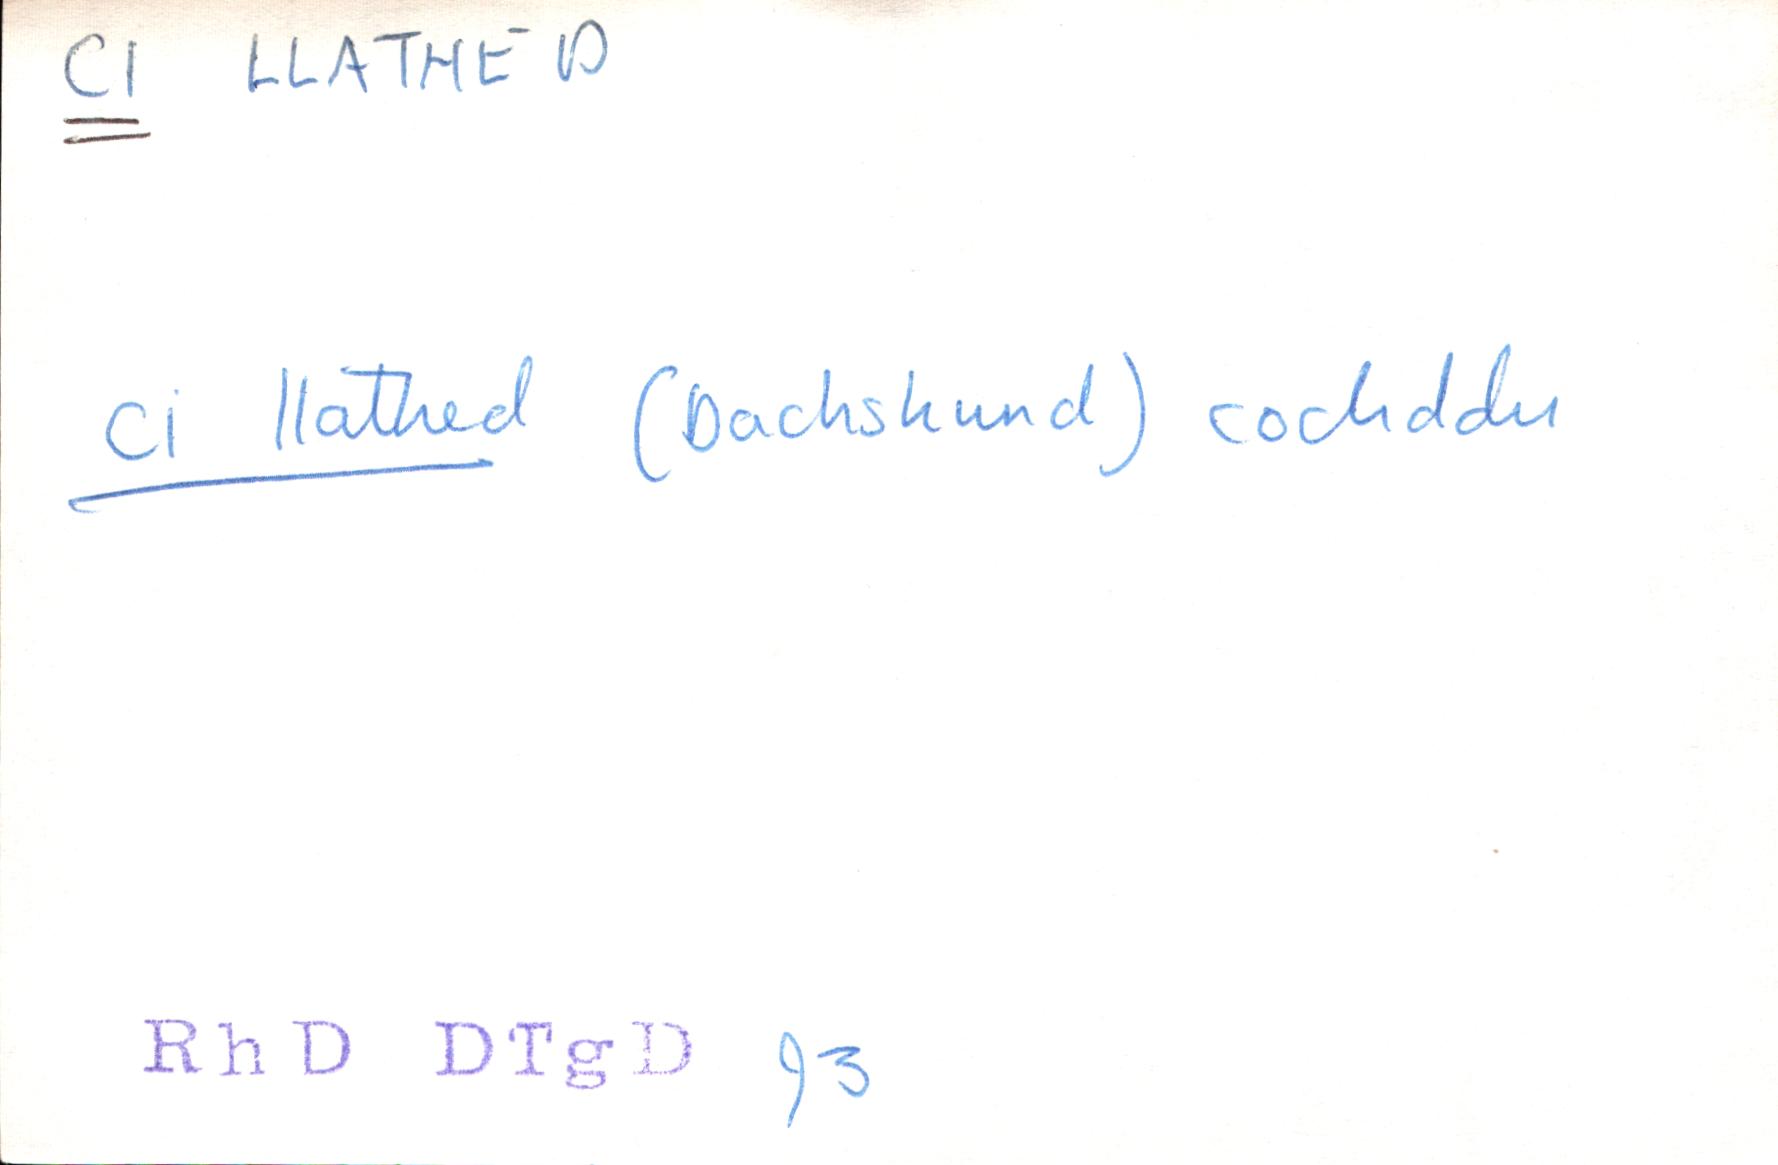 CI LLATHED
Ci llathed (Dachshund) cochddu
RhD DTgD 93